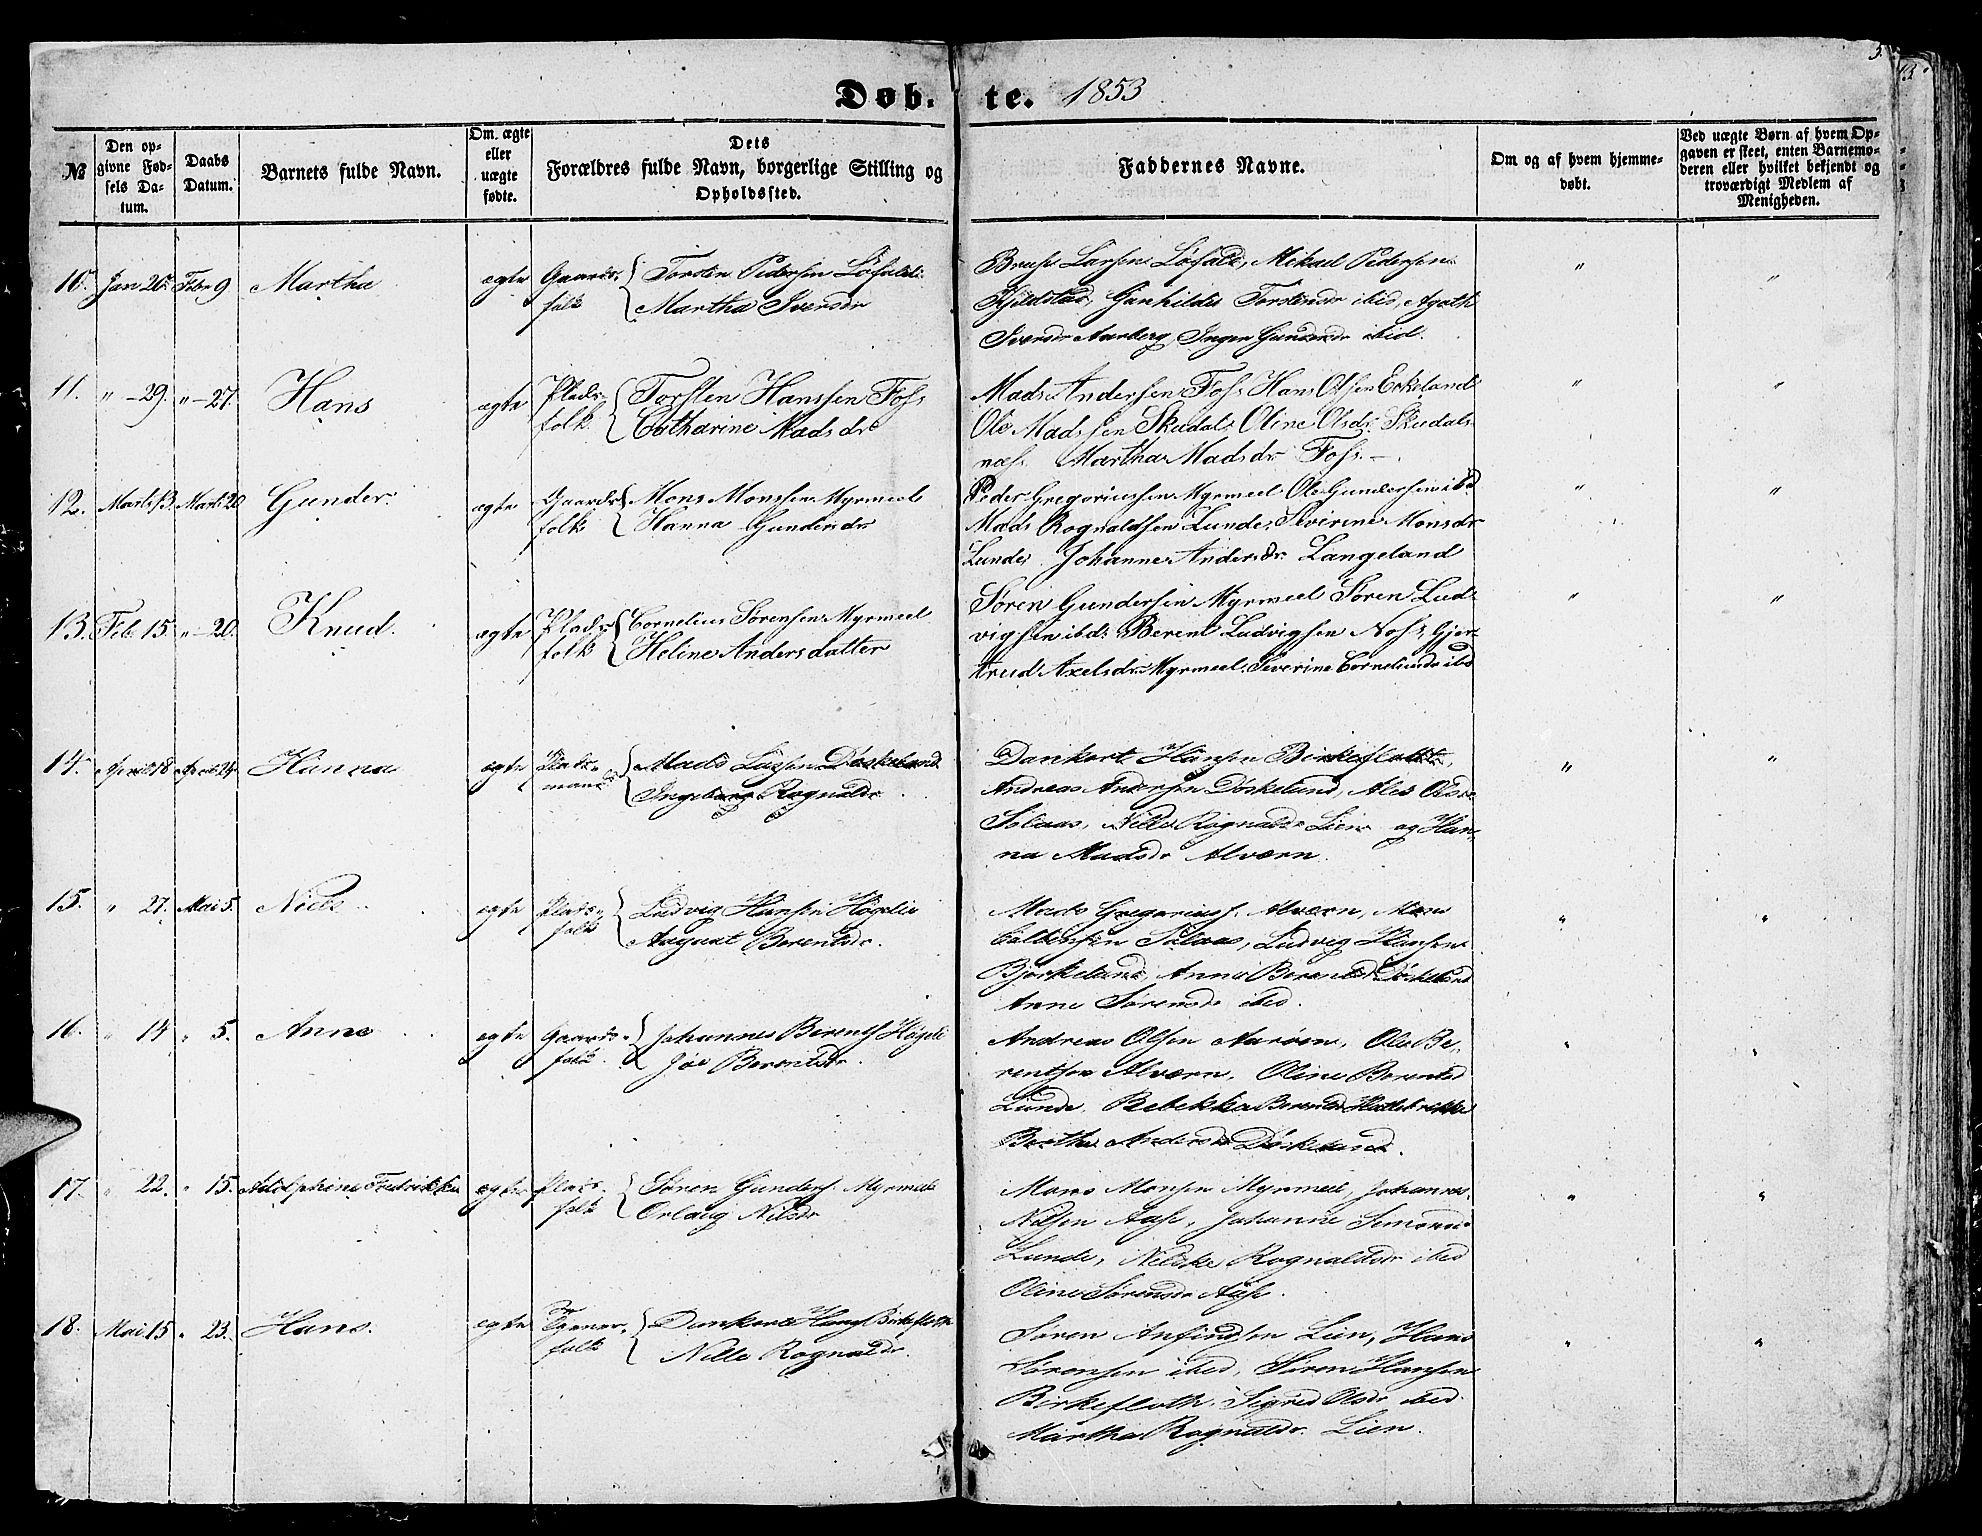 5.
Døb. te. 1853
№
Den op-
givne Fød-
sels Da-
tum.
Daabs
Datum.
Barnets fulde Navn.
Om ægte
eller
uægte
fødte.
Dets
Forældres fulde Navn, borgerlige Stilling og
Opholdssted.
Faddernes Navne.
Om og af hvem hjemme-
døbt.
Ved uægte Børn af hvem Op-
gaven er skeet, enten Barnemo-
deren eller hvilket bekjendt og
troværdigt Medlem af
Menigheden.
10. Jan 26. Febr 9 Martha ægte Gaards- folk Torsten Pedersen
Martha Iversdr
Larsen Mikael Pedersen
Gunhilde Torstensdr ibid, Agathe
Iversdr Aarberg, Inger Gundersdr ibid.
11. " - 29. " - 27. Hans ægte Plads- folk Torsten Hanssen Foss
Catharine Madsdr
Mads Andersen Foss Hans Olsen Erkeland
Ole Madssen Skudals Oline Olsdr Skudals-
næs. Martha Madsdr Foss. -
12. Marts 13. Marts 20 Gunder ægte Gaards- folk Mons Monssen Myrmeel
Hanna Gundersdr
Peder Gregoriussen Myrmeel Ole Gundersen ibd
Mads Rognaldsen Lunde, Severine Monsdr
Lunde Johanne Andersdr Langeland
13. Feb 15. " - 20. Knud. ægte Plads- folk Cornelius Sørensen Myrmeel
Heline Andersdatter
Søren Gundersen Myrmeel Søren Lud-
vigsen ibd: Berent Ludvigsen Noss, Gjer-
trud Axelsdr Myrmeel. Severine Corneliusdr ibd
14. April 18 April 24 Hanna ægte Plads- mand Mads Larssen Døskeland
Ingeborg Rognaldr
Dankert Hansen Birkeflotte,
Andreas Andersen Døskeland, Ales Olsdr
Solaas, Nille Rognaldr Lien og Han-
na Madsdr Alværn.
15. " 27. Mai 5. Niels ægte Plads- folk Ludvig Hansen Høgelie
Aagaat Berentsdr.
Mads Gregoriuss. Alværn, Mons
Solaas, Ludvig Hansen
Bjørkeland, Anne Berentsd Døskeland
Anne Sørensdr ibid.
16. " 14 " 5. Anne ægte Gaards- folk Johannes Berents Høgeli
Jøe Berentsdr.
Andreas Olsen Aarøen, Ole Be-
rentsen Alværn, Oline Berentsd
Lunde, Rebekka Berentsd
Berthe Andersdr Døskeland.
17. " 22. " 15. Adolphine Fredrikke ægte Plads- folk Søren Gunders. Myrmeele
Orlaug Nilsdr
Mons Monsen Myrmeele, Johannes
Nilsen Aase, Johanne Simonsdr
Lunde, Nilske Rognaldsdr ibid
Oline Sørensdr Aase.
18. Mai 15 " 23. Hans. ægte Tjener- folk Dankert Hans Birkeflotte
Nille Rognaldr.
Søren Anfindsen Lien, Hans
Sørensen ibid, Søren Hansen
Birkefloth, Sigrid Olsdr ibid
Martha Rognaldr Lien.